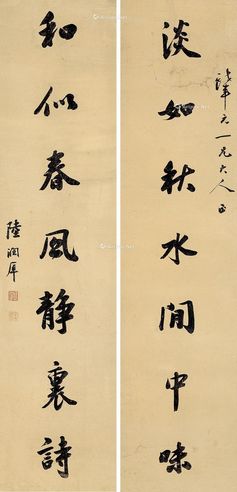 淡如秋水閒中味
大一兄大人正
和似春風静裏詩
陸潤庠